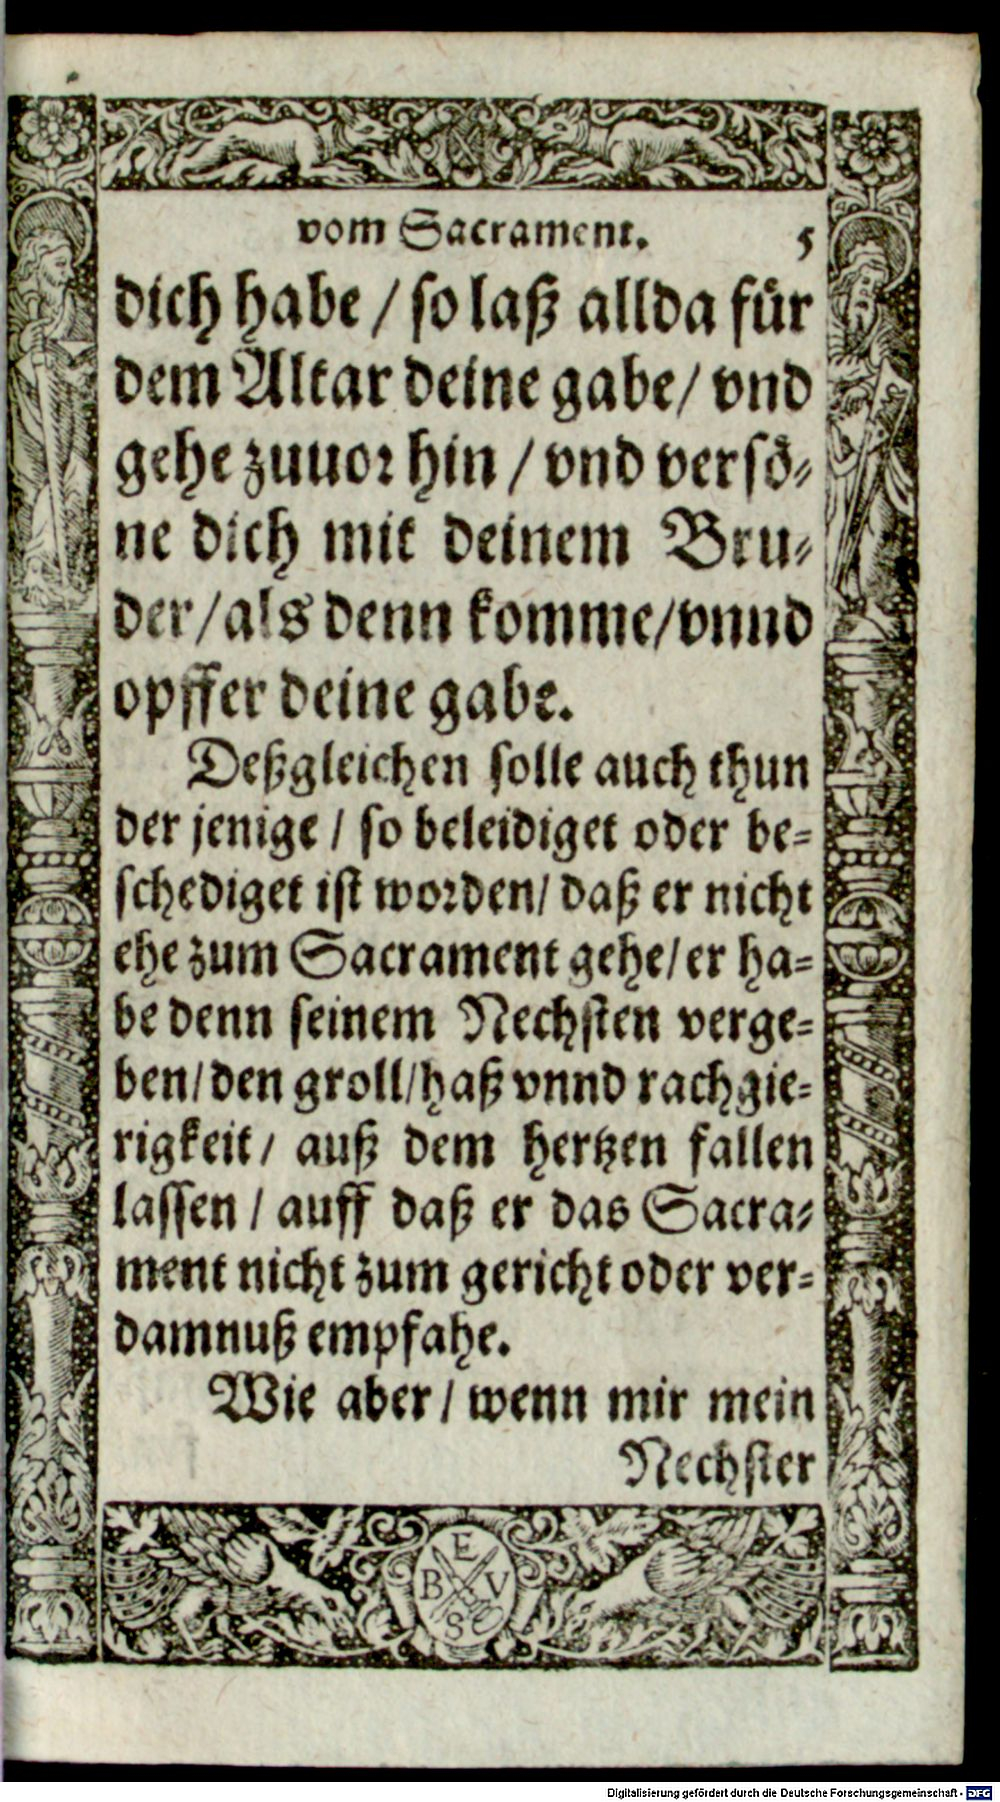 vom Sacrament. 5
dich habe / so laß allda für
dem Altar deine gabe / vnd
gehe zuuor hin / vnd versö-
ne dich mit deinem Bru-
der / als denn komme / vnnd
opffer deine gabe.
Deßgleichen solle auch thun
der jenige / so beleidiget oder be-
schediget ist worden / daß er nicht
ehe zum Sacrament gehe / er ha-
be denn seinem Nechsten verge-
ben / den groll / haß vnnd rachgie-
rigkeit / auß dem hertzen fallen
lassen / auff daß er das Sacra-
ment nicht zum gericht oder ver-
damnuß empfahe.
Wie aber / wenn mir mein
Nechster
E
B V
S
Digitalisierung gefördert durch die Deutsche Forschungsgemeinschaft - DFG